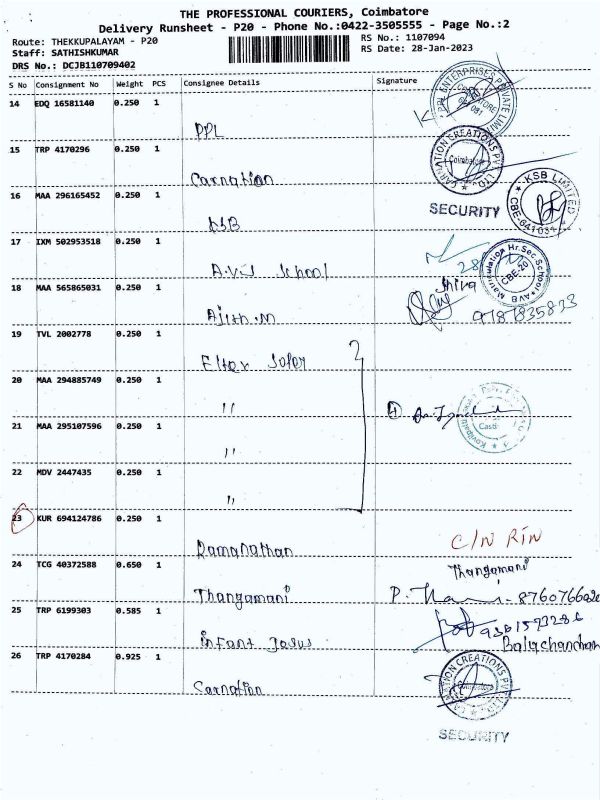 THE PROFESSIONAL COURIERS, Coimbatore
Delivery Runsheet - P20 - Phone No.:0422-3505555 - Page No.:2
Route: THEKKUPALAYAM - P20
RS No.: 1107094
Staff: SATHISHKUMAR
RS Date: 28-Jan-2023
DRS No.: DCJB110709402
S No Consignment No Weight PCS Consignee Details Signature
14 EDQ 16581140 0.250 1
PPL
15 TRP 4170296 0.250 1
Carnation
Coimbatore
SECURITY
16 MAA 296165452 0.250 1
KSB
KSB LIMITED
CBE-641031
17 IXM 502953518 0.250 1
A.V.B School
Matriculation Hr.Sec.School AVB
CBE-20
18 MAA 565865031 0.250 1
Ajith.M
Shiva
9787835833
19 TVL 2002778 0.250 1
20 MAA 294885749 0.250 1
"
4
21 MAA 295107596 0.250 1
"
22 MDV 2447435 0.250 1
"
23 KUR 694124786 0.250 1
Ramanathan
C/N RTN
24 TCG 40372588 0.650 1
Thangamani
Thangamani
25 TRP 6199303 0.585 1
Infant Jesus
26 TRP 4170284 0.925 1
Carnation
CARNATION CREATIONS PVT LTD
SECURITY